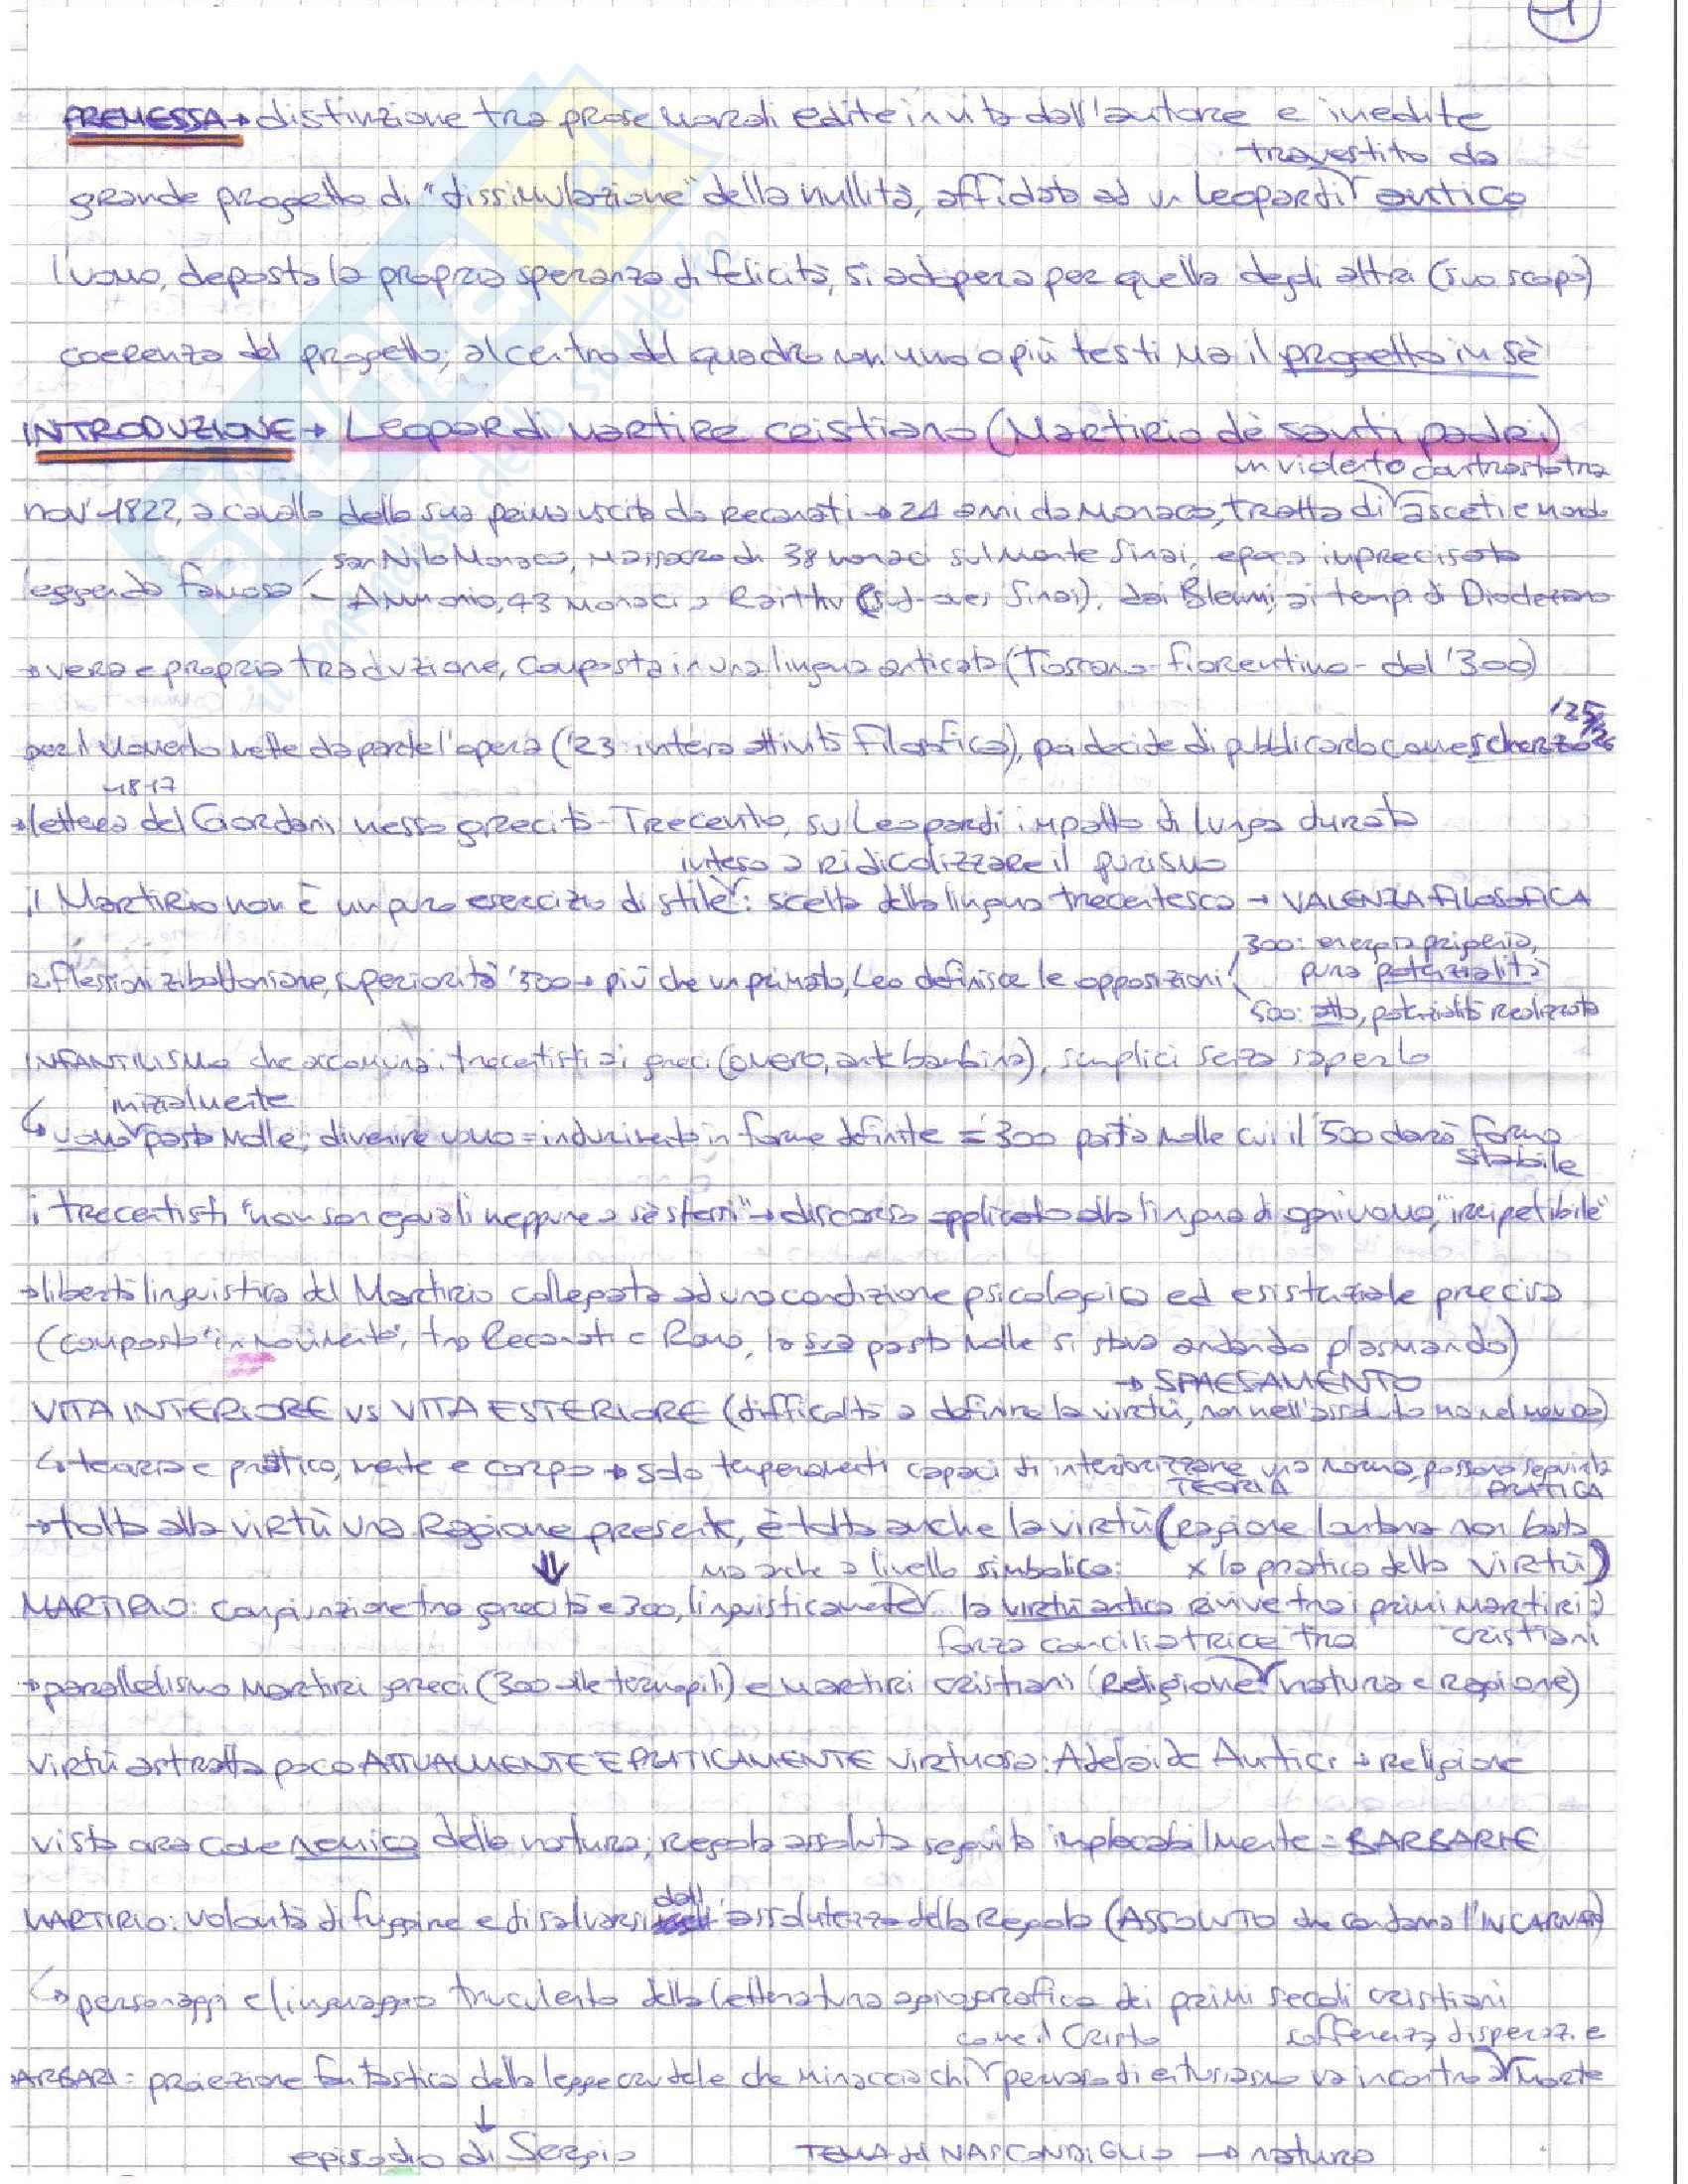 1
PREMESSA → distinzione tra prose morali edite in vita dall'autore e inedite
travestito da
grande progetto di "dissimulazione" della nullità, affidato ad un Leopardi antico
l'uomo, deposta la propria speranza di felicità, si adopera per quella degli altri (suo scopo)
coerenza del progetto; al centro del quadro non uno o più testi ma il progetto in sè
INTRODUZIONE → Leopardi martire cristiano (Martirio dè santi padri)
un violento contrasto tra
nov' 1822, a cavallo della sua prima uscita da Recanati → 24 anni da Monaco, tratta di asceti e mondo
san Nilo Monaco, massacro di 38 monaci sul Monte Sinai, epoca imprecisata
leggenda famosa - Ammonio, 43 monaci a Raithu (sud-ovest Sinai), dai Blemmi, ai tempi di Diocleziano
→ vera e propria traduzione, composta in una lingua anticata (Toscano-fiorentino - del '300)
'25/26
per il momento mette da parte l'opera ('23: intera attività filosofica), poi decide di pubblicarlo come scherzo
1817
→ lettera del Giordani, nesso grecità-Trecento, su Leopardi impatto di lunga durata
inteso a ridicolizzare il purismo
il Martirio non è un puro esercizio di stile: scelta della lingua trecentesca → VALENZA FILOSOFICA
300: energia primeria,
pura potenzialità
riflessioni zibaldoniane, superiorità '300 → più che un primato, Leo definisce le opposizioni
500: atto, potenzialità realizzata
INFANTILISMO che accomuna i trecentisti ai greci (Omero, arte bambina), semplici senza saperlo
inizialmente
↳ uomo pasta molle; divenire uomo = indurimento in forme definite = '300 pasta molle cui il '500 darà forma
stabile
i trecentisti "non son eguali neppure a sè stessi" → discorso applicato alla lingua di ogni uomo, "irripetibile"
→ libertà linguistica del Martirio collegata ad una condizione psicologica ed esistenziale precisa
(composto "in movimento", tra Recanati e Roma, la sua pasta molle si stava andando plasmando)
→ SPAESAMENTO
VITA INTERIORE vs VITA ESTERIORE (difficoltà a definire la virtù, non nell'assoluto ma nel mondo)
↳ teoria e pratica, mente e corpo → solo temperamenti capaci di interiorizzare una norma, possono seguirla
TEORIA PRATICA
→ tolta alla virtù una Ragione presente, è tolta anche la virtù (ragione lontana non basta
ma anche a livello simbolico: x la pratica della virtù)
MARTIRIO: congiunzione tra grecità e 300, linguisticamente la virtù antica rivive tra i primi martiri
forza conciliatrice tra cristiani
→ parallelismo martiri greci (300 alle termopili) e martiri cristiani (Religione natura e ragione)
virtù astratta poco ATTUALMENTE E PRATICAMENTE virtuosa: Adelaide Antici → religione
vista ora come nemica della natura; regola assoluta seguita implacabilmente = BARBARIE
MARTIRIO: volontà di fuggire e di salvarsi dall'assolutezza della Regola (ASSOLUTO che condanna l'INCARNATO)
↳ personaggi e linguaggio truculento della letteratura agiografica dei primi secoli cristiani
come il Cristo sofferenza, disperaz. e
BARBARI = proiezione fantastica della legge crudele che minaccia chi pervaso di entusiasmo va incontro a morte
↓
episodio di Sergio TEMA del NASCONDIGLIO → natura